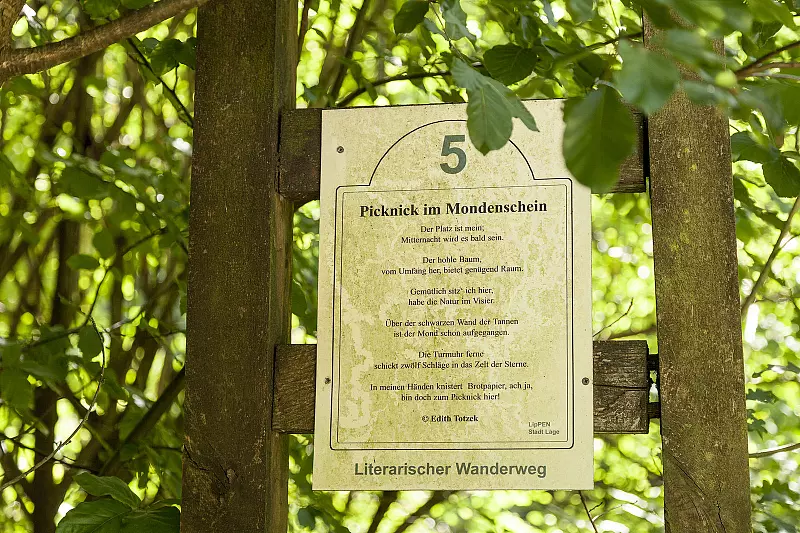 5
Picknick im Mondenschein
Der Platz ist mein;
Mitternacht wird es bald sein.
Der hohle Baum,
vom Umfang her, bietet genügend Raum.
Gemütlich sitz' ich hier,
habe die Natur im Visier.
Über der schwarzen Wand der Tannen
ist der Mond schon aufgegangen.
Die Turmuhr ferne
schickt zwölf Schläge in das Zelt der Sterne.
In meinen Händen knistert Brotpapier, ach ja,
bin doch zum Picknick hier!
© Edith Totzek
LipPEN
Stadt Lage
Literarischer Wanderweg